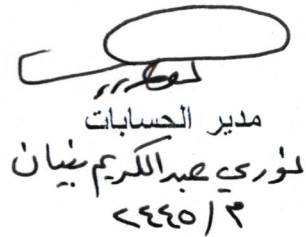 مدير الحسابات
نوري عبدالكريم بنيان
٢٤٤٥/٣